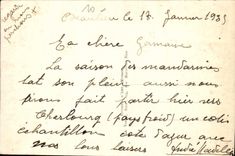 le 15 Janvier 1935
Ma chère Germaine
La saison des mandarines
bat son plein aussi nous
avons fait partir hier vers
Cherbourg (pays froid) un colis
échantillon côte d'azur avec
nos bons baisers